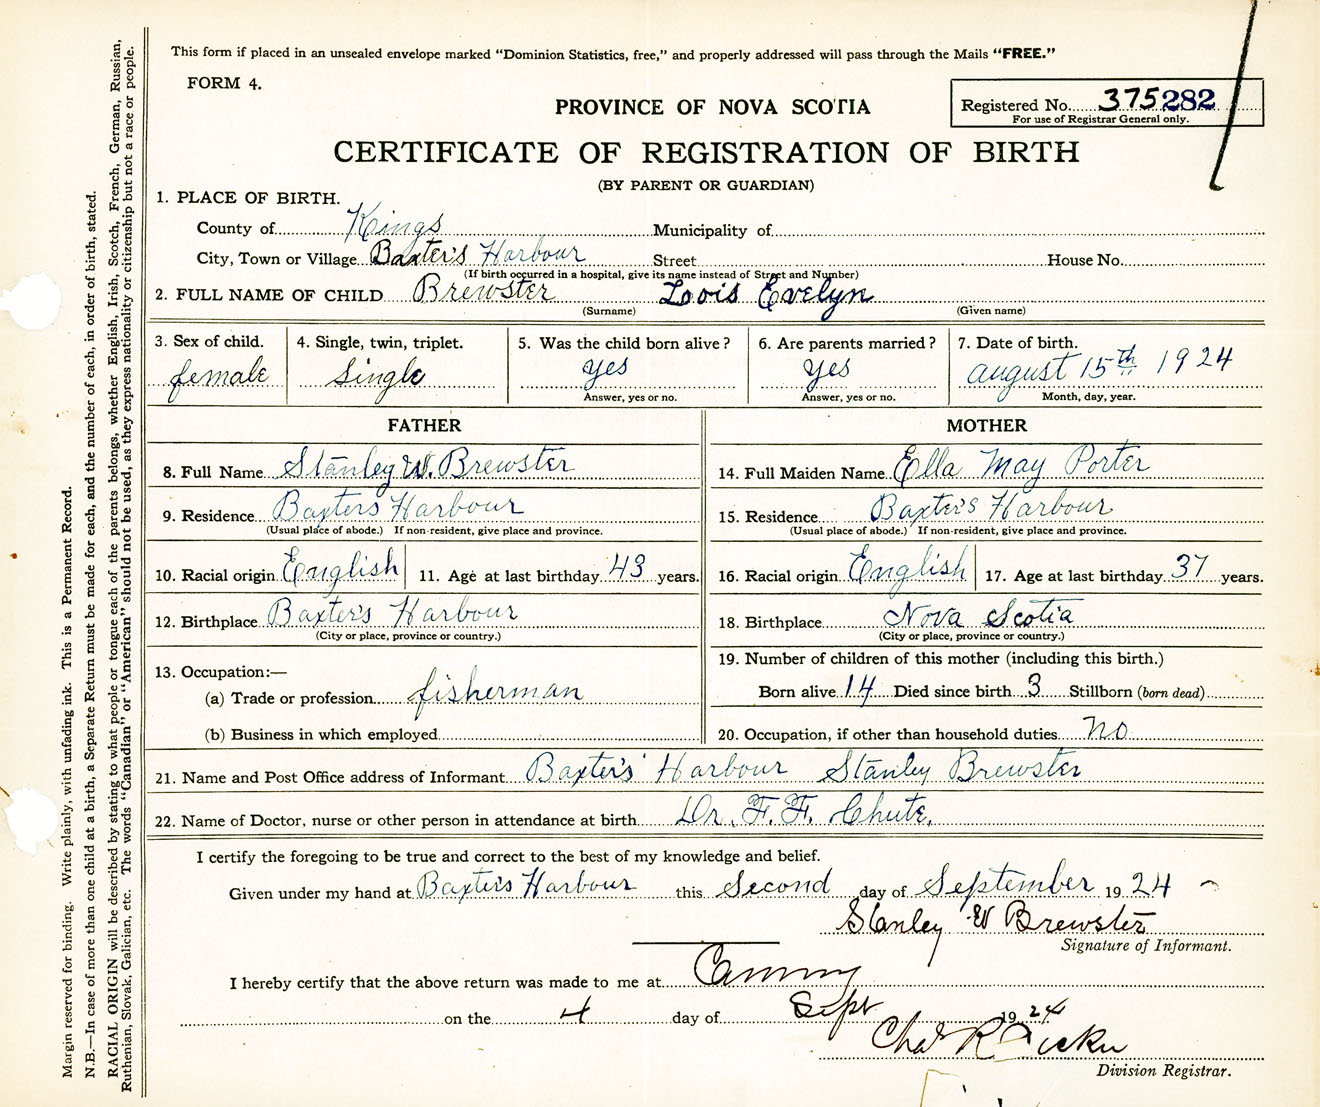 This form if placed in an unsealed envelope marked "Dominion Statistics, free," and properly addressed will pass through the Mails "FREE."
FORM 4.
PROVINCE OF NOVA SCOTIA
Registered No. 375282
For use of Registrar General only.
CERTIFICATE OF REGISTRATION OF BIRTH
(BY PARENT OR GUARDIAN)
1. PLACE OF BIRTH.
County of Kings Municipality of
City, Town or Village Baxter's Harbour Street House No.
(If birth occurred in a hospital, give its name instead of Street and Number)
2. FULL NAME OF CHILD Brewster Lois Evelyn
(Surname) (Given name)
3. Sex of child. 4. Single, twin, triplet. 5. Was the child born alive? 6. Are parents married? 7. Date of birth.
female single yes yes august 15th 1924
Answer, yes or no. Answer, yes or no. Month, day, year.
FATHER
8. Full Name Stanley W. Brewster
9. Residence Baxters Harbour
(Usual place of abode.) If non-resident, give place and province.
10. Racial origin English 11. Age at last birthday 43 years.
12. Birthplace Baxter's Harbour
(City or place, province or country.)
13. Occupation:—
(a) Trade or profession fisherman
(b) Business in which employed
MOTHER
14. Full Maiden Name Ella May Porter
15. Residence Baxter's Harbour
(Usual place of abode.) If non-resident, give place and province.
16. Racial origin English 17. Age at last birthday 37 years.
18. Birthplace Nova Scotia
(City or place, province or country.)
19. Number of children of this mother (including this birth.)
Born alive 14 Died since birth 3 Stillborn (born dead)
20. Occupation, if other than household duties no
21. Name and Post Office address of Informant Baxter's Harbour Stanley Brewster
22. Name of Doctor, nurse or other person in attendance at birth Dr. F. F. Chute.
I certify the foregoing to be true and correct to the best of my knowledge and belief.
Given under my hand at Baxter's Harbour this Second day of September 1924
Stanley W Brewster
Signature of Informant.
I hereby certify that the above return was made to me at Canning
on the 4 day of Sept 1924
Chas R
Division Registrar.
Margin reserved for binding. Write plainly, with unfading ink. This is a Permanent Record.
N.B.—In case of more than one child at a birth, a Separate Return must be made for each, and the number of each, in order of birth, stated.
RACIAL ORIGIN will be described by stating to what people or tongue each of the parents belongs, whether English, Irish, Scotch, French, German, Russian,
Ruthenian, Slovak, Galician, etc. The words "Canadian" or "American" should not be used, as they express nationality or citizenship but not a race or people.